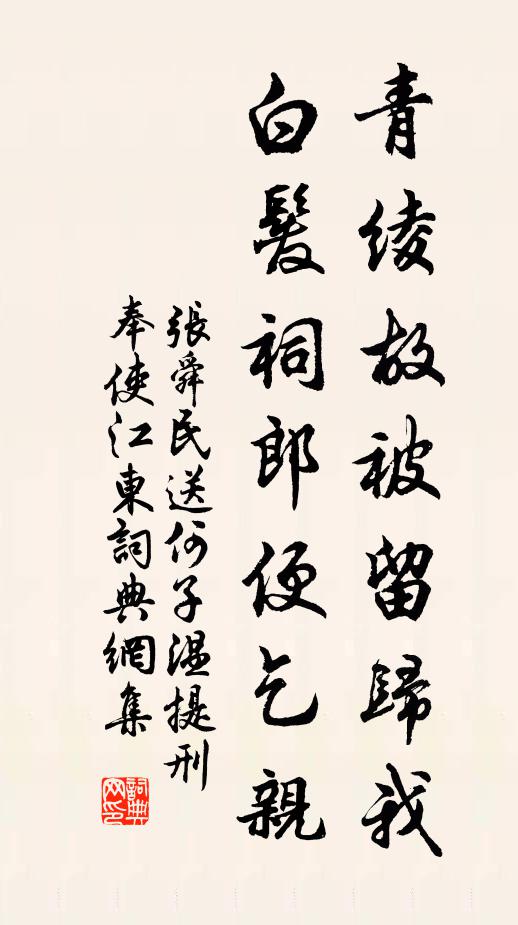 青綾故被留歸我
白髮祠郎便乞親
張舜民送何子溫提刑
奉使江東詞典網集
詞典
网印